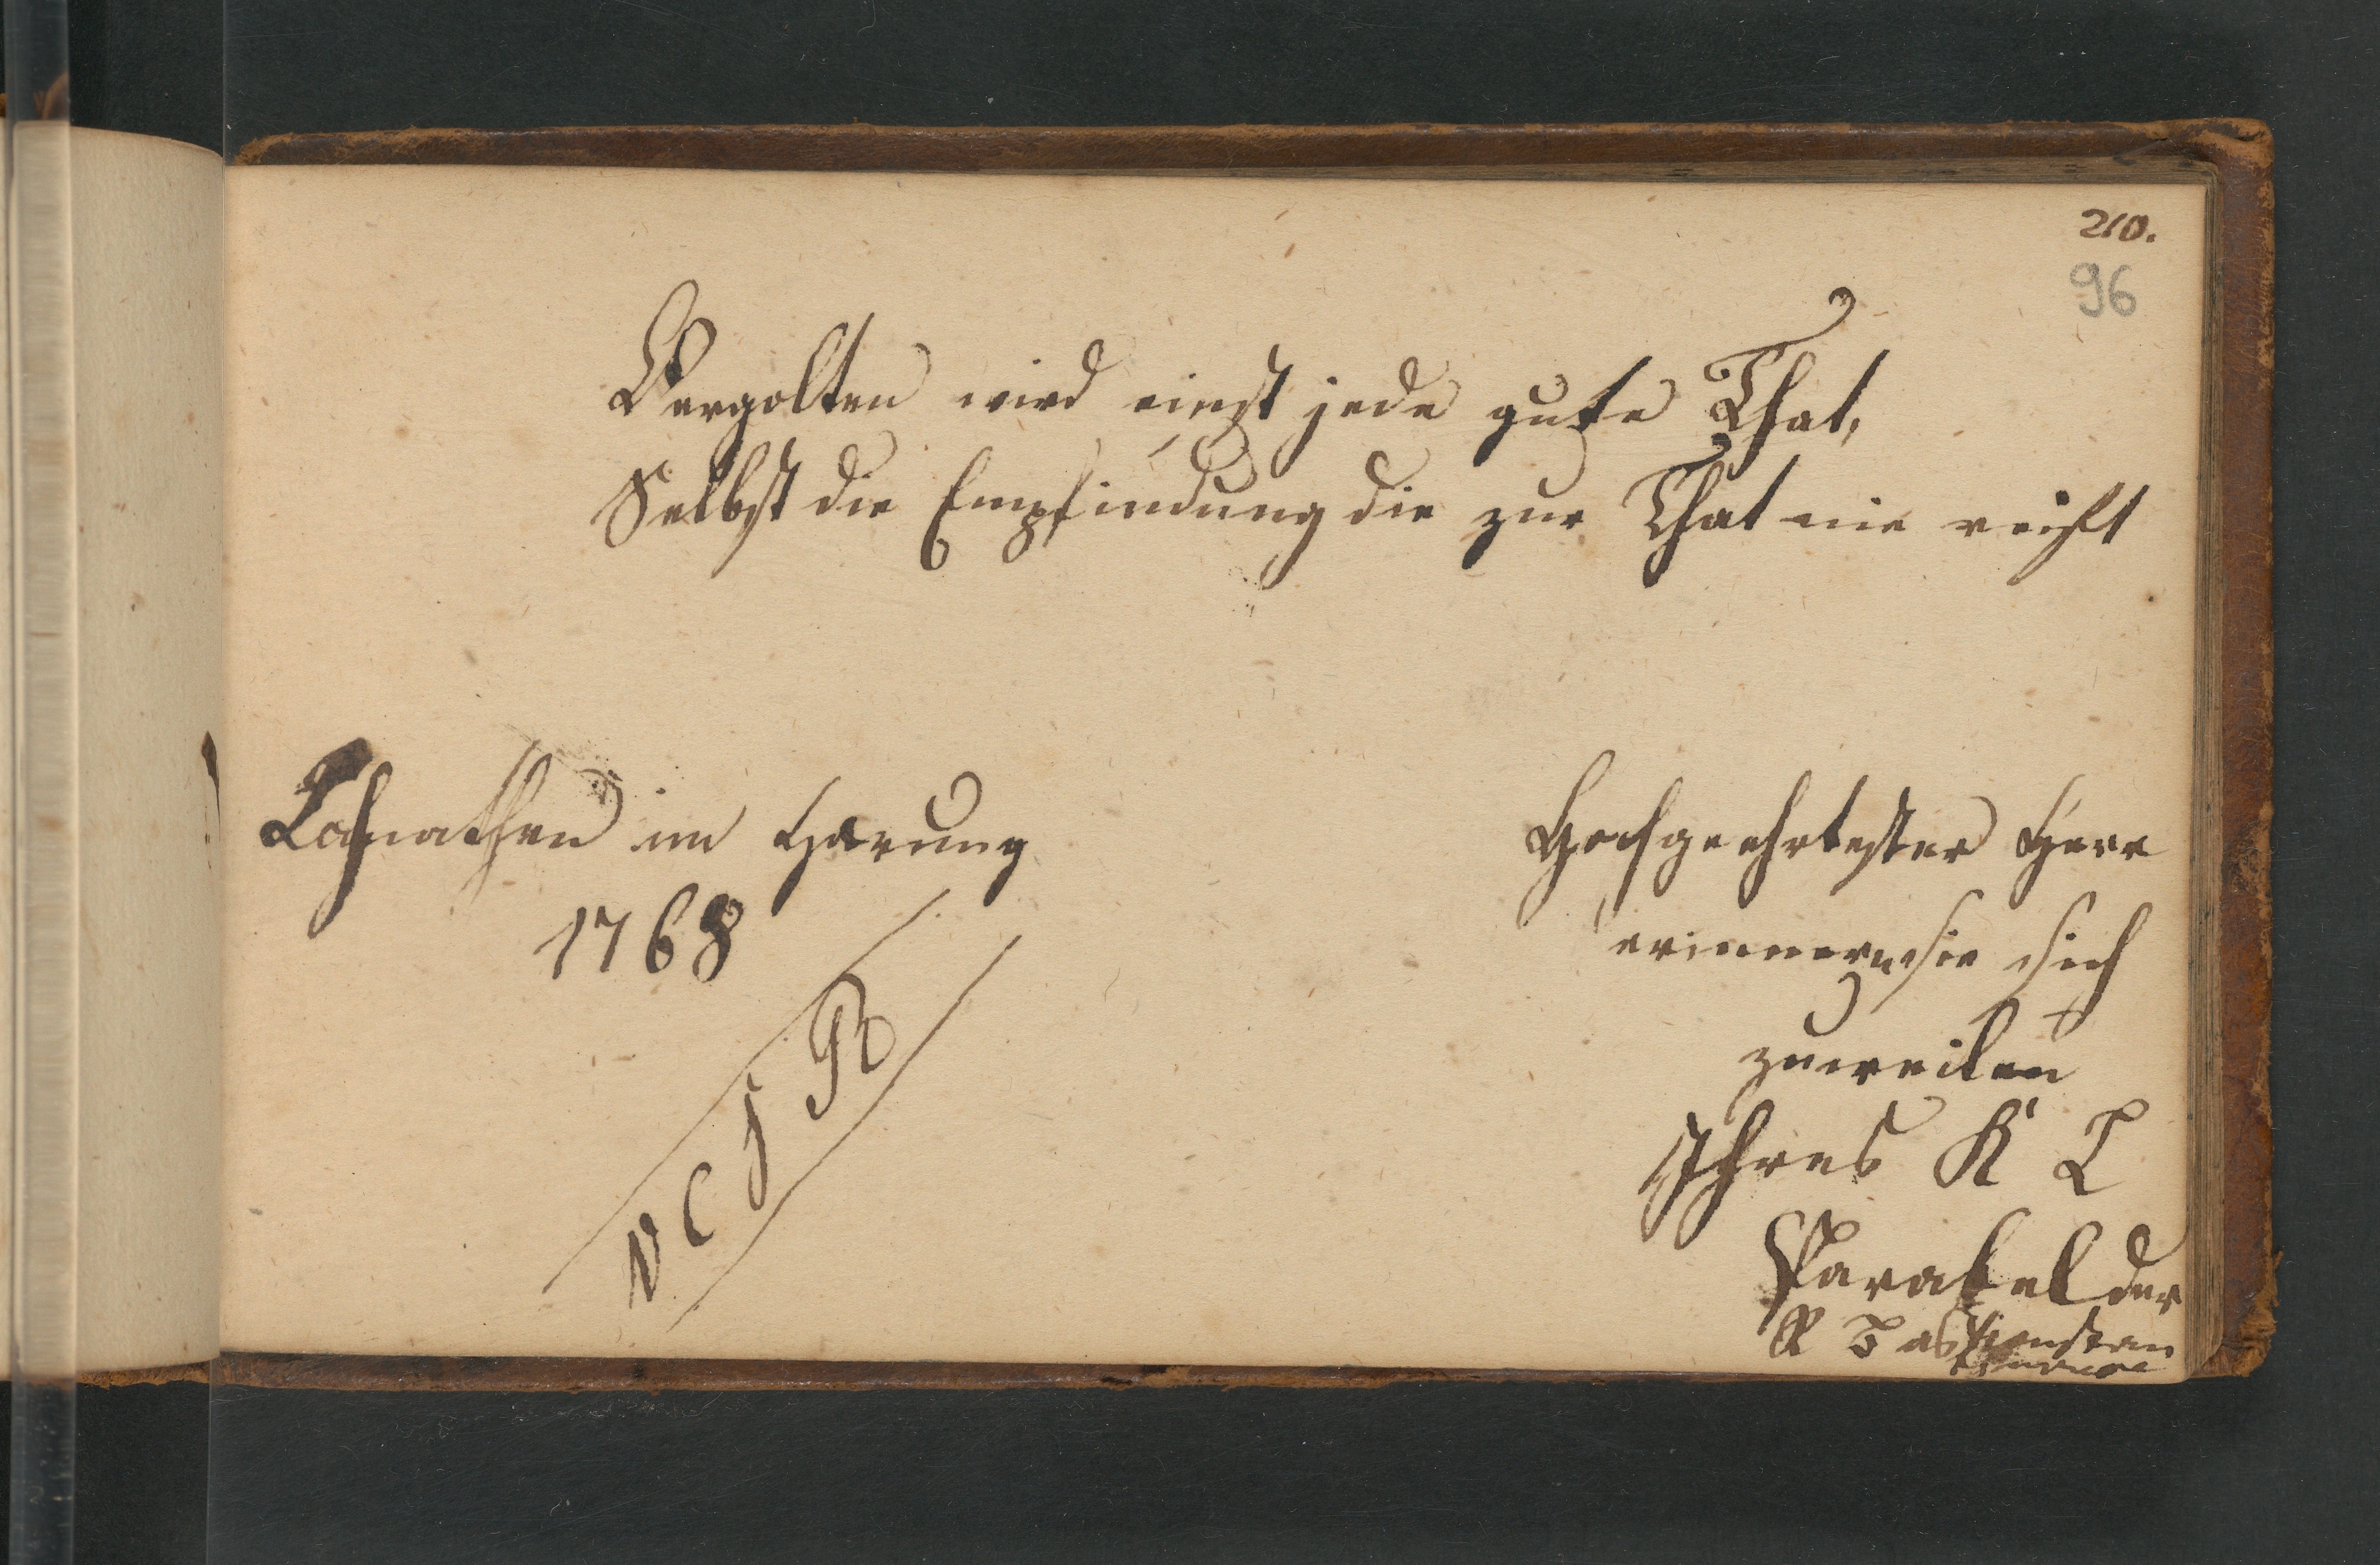 210.
96
Vergolten wird einst jede gute That,
Selbst die Empfindung die zur That nie reift
im Harung
1768
V C J R
Hochgeehrtester Herr
erinnern sie sich
zuweilen
Ihres K L
Parabel der
R T as